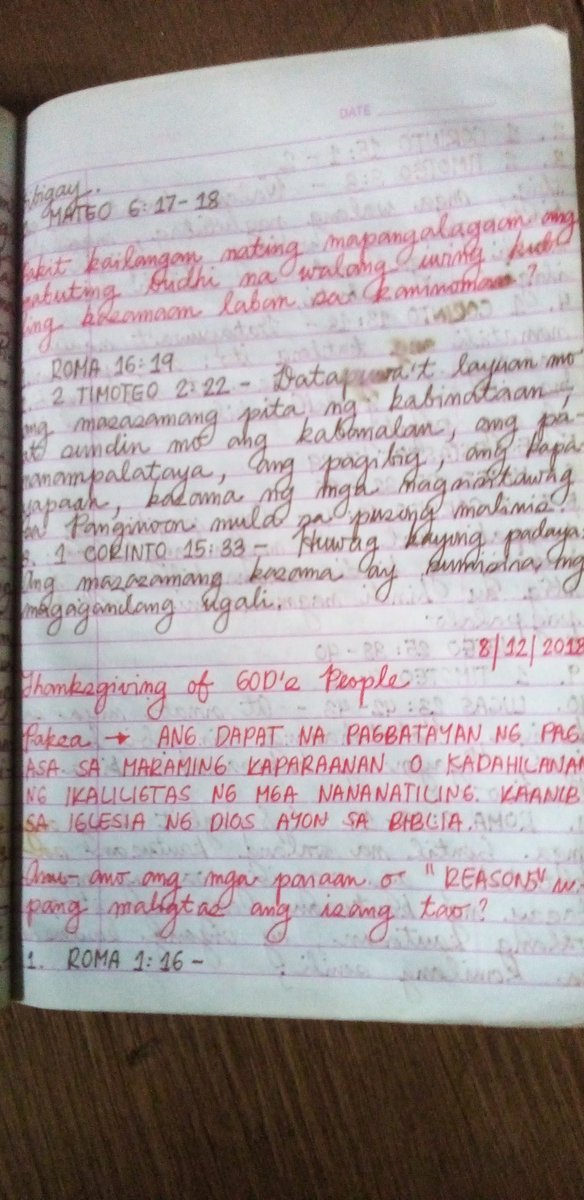 DATE
bigay.
MATEO 6:17-18
akit kailangan nating mapangalagaan ang
mabuting budhi na walang iuring
ing kasamaan laban sa kaninoman?
ROMA 16:19
2 TIMOTEO 2:22 - Datapuwa't layuan mo
ang masasamang pita ng kabinataan,
at sundin mo ang kabanalan, ang pa
nanampalataya, ang pagibig, ang kapa
yapaan, kasama ng mga nagsisitawag
sa Panginoon mula sa pusong malinis.
1 CORINTO 15:33 - Huwag kayong padaya:
Ang masasamang kasama ay sumisira ng
magagandang ugali.
8/12/2018
Thanksgiving of GOD's People
Paksa → ANG DAPAT NA PAGBATAYAN NG PAG
ASA SA MARAMING KAPARAANAN O KADAHILANAN
NG IKALILIGTAS NG MGA NANANATILING KAANIB
SA IGLESIA NG DIOS AYON SA BIBLIA.
Anu-ano ang mga paraan o "REASONS" u
pang maligtas ang isang tao?
1. ROMA 1:16 -